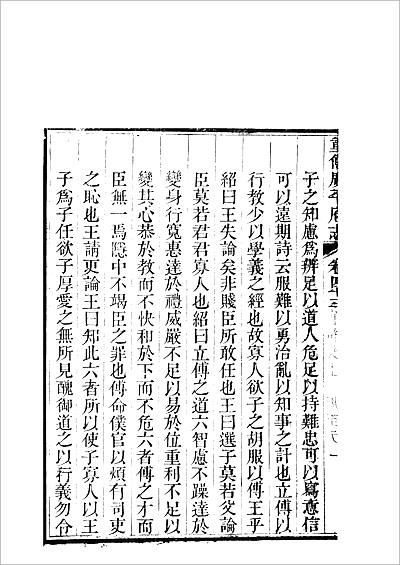 重修廣平府志 卷四十
子之知慮爲辨足以道人危足以持難忠可以寫意信
可以遠期詩云服難以勇治亂以知事之計也立傅以
行教少以學義之經也故寡人欲子之胡服以傅王乎
紹曰王失論矣非賤臣所敢任也王曰選子莫若父論
臣莫若君君寡人也紹曰立傅之道六智慮不躁達於
變身行寬惠達於禮威嚴不足以易於位重利不足以
變其心恭於教而不快和於下而不危六者傅之才而
臣無一焉隱中不竭臣之罪也傅命僕官以煩有司吏
之恥也王請更論王曰知此六者所以使子寡人以王
子爲子任欲子厚愛之無所見醜御道之以行義勿令